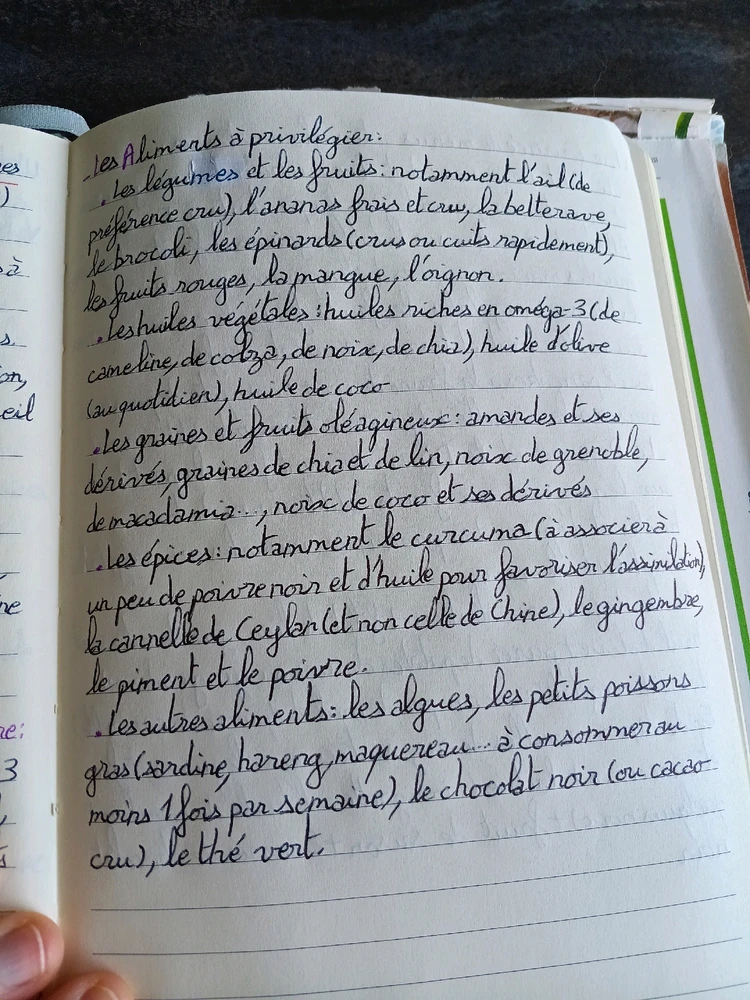 es
)
à
s.
on,
eil
ne
re:
3
s
- Les Aliments à privilégier:
. Les légumes et les fruits: notamment l'ail (de
préférence cru), l'ananas frais et cru, la betterave,
le brocoli, les épinards (crus ou cuits rapidement),
les fruits rouges, la mangue, l'oignon.
. Les huiles végétales : huiles riches en oméga-3 (de
cameline, de colza, de noix, de chia), huile d'olive
(au quotidien), huile de coco
. Les graines et fruits oléagineux : amandes et ses
dérivés, graines de chia et de lin, noix de grenoble,
de macadamia..., noix de coco et ses dérivés
. Les épices : notamment le curcuma (à associer à
un peu de poivre noir et d'huile pour favoriser l'assimilation),
la cannelle de Ceylan (et non celle de Chine), le gingembre,
le piment et le poivre.
. Les autres aliments : les algues, les petits poissons
gras (sardine, hareng, maquereau... à consommer au
moins 1 fois par semaine), le chocolat noir (ou cacao
cru), le thé vert.